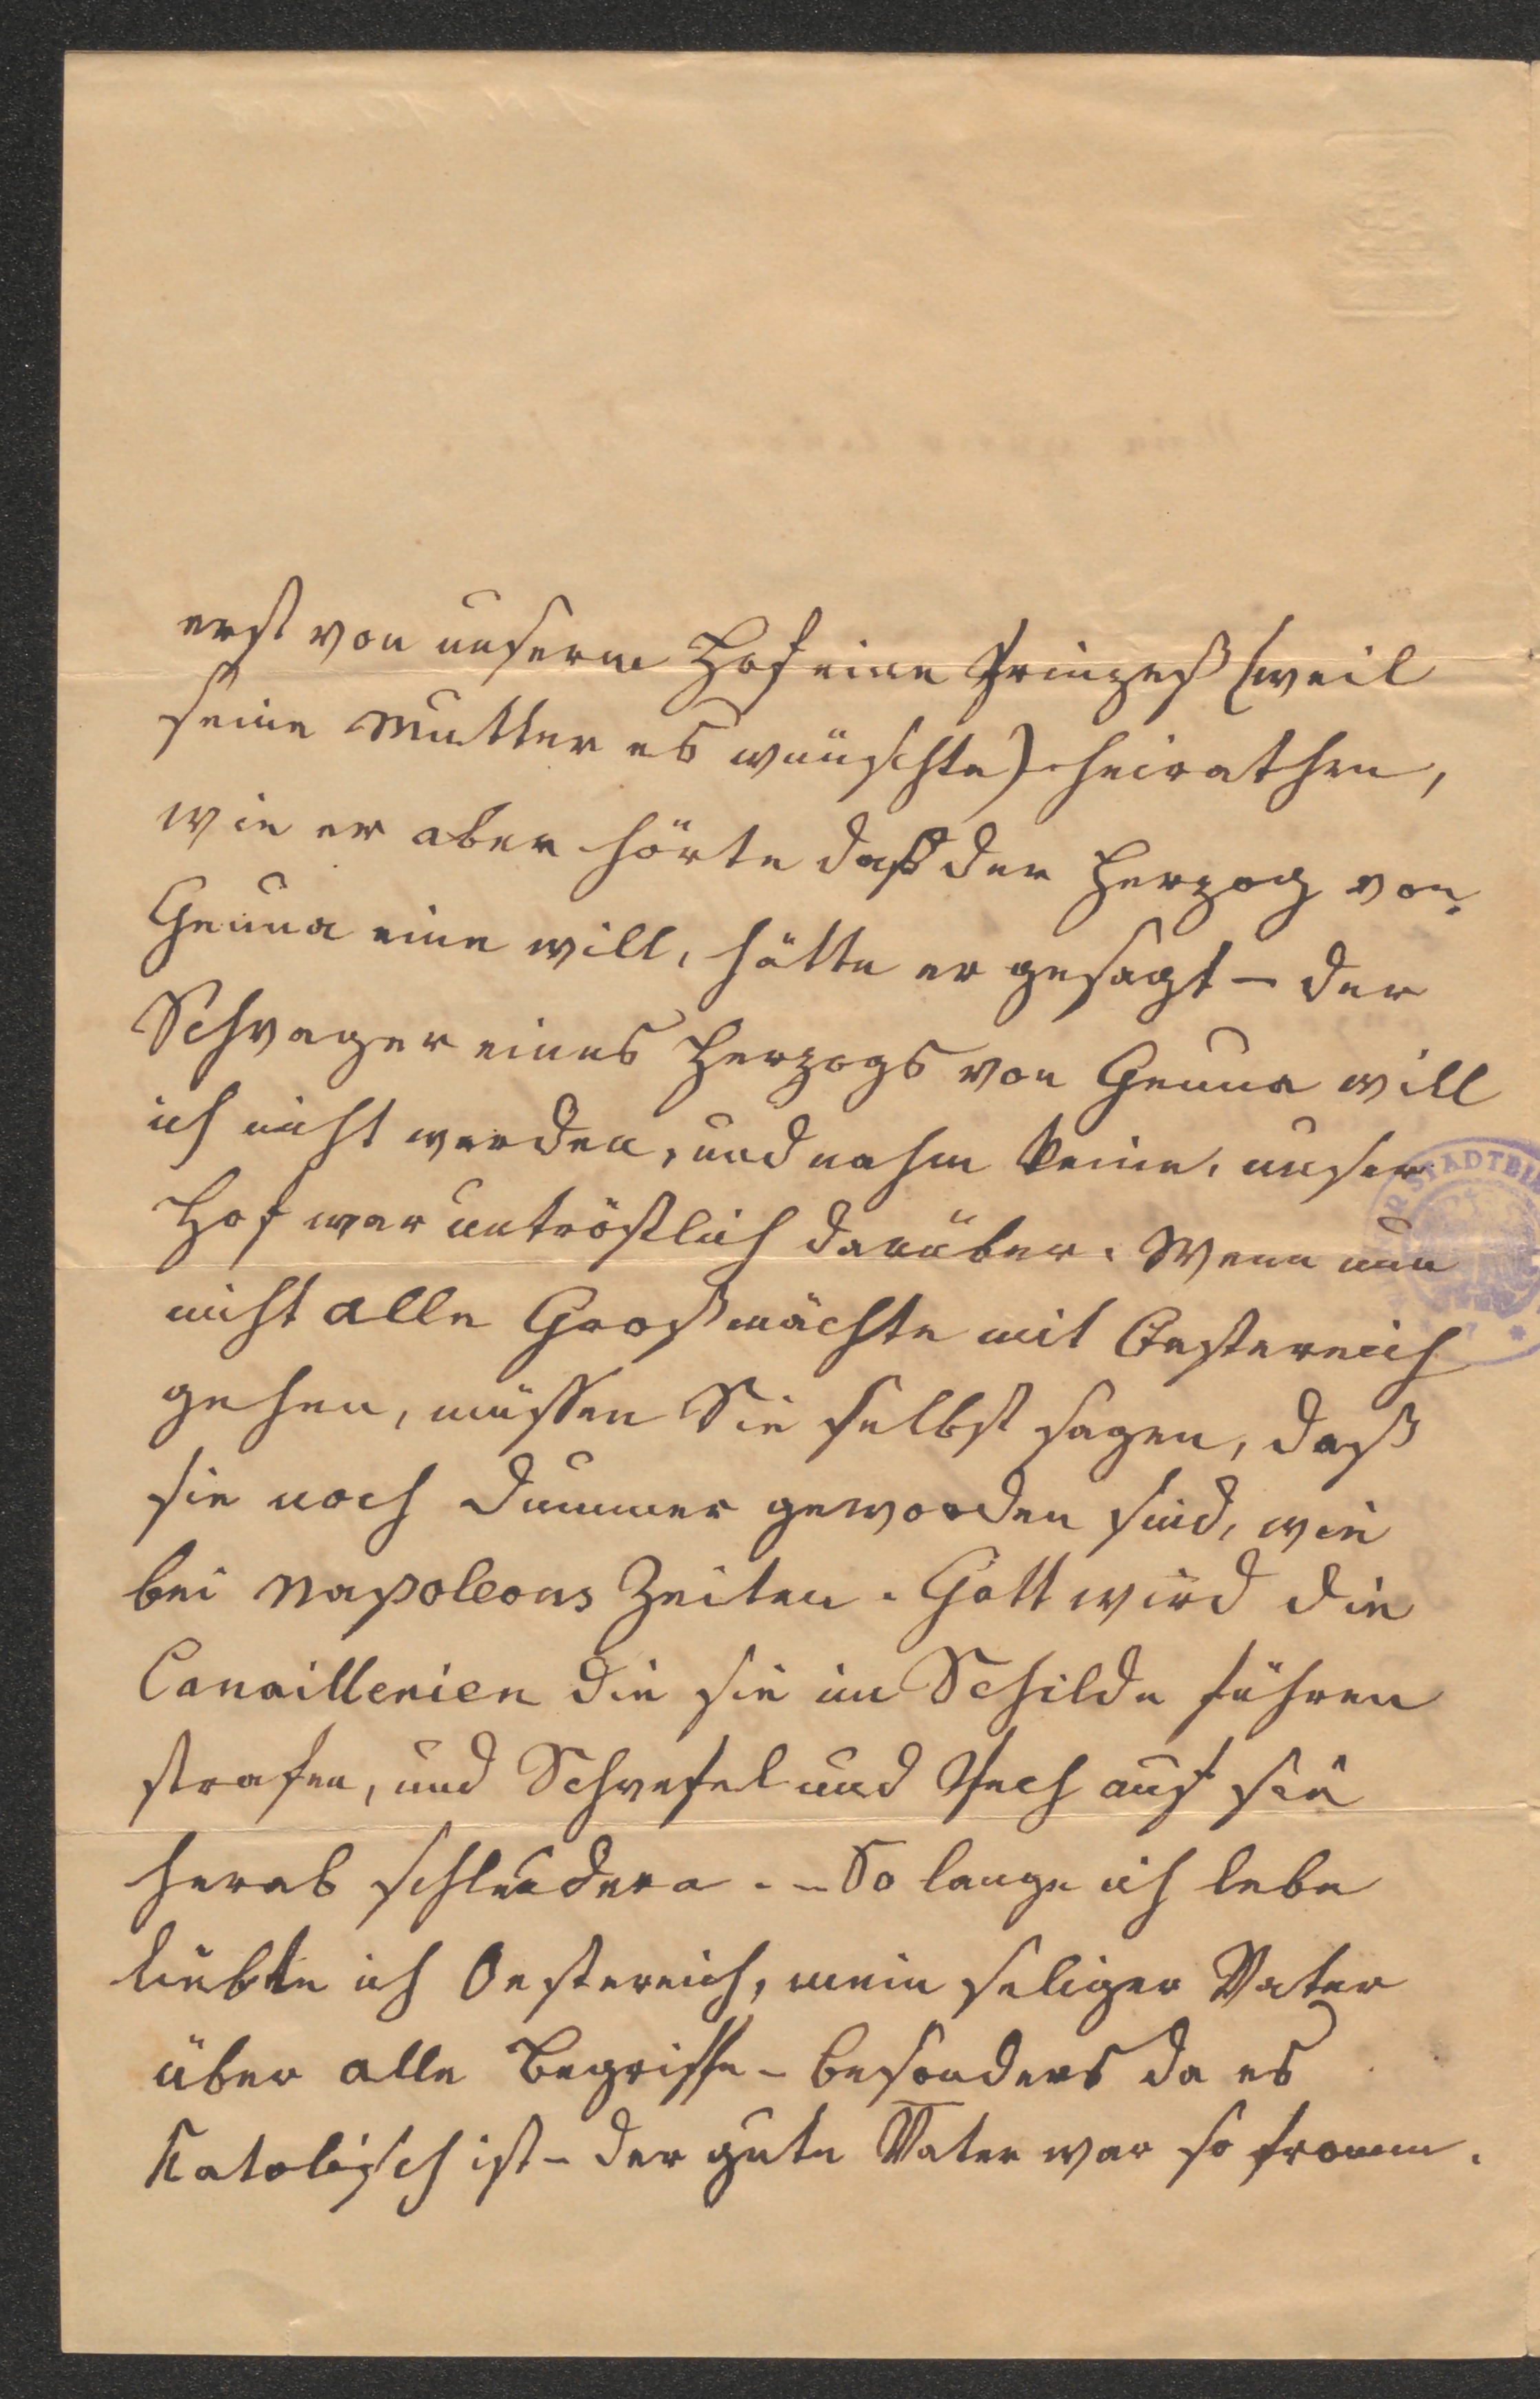 erst von unserm Hof eine Prinzeß (weil
seine Mutter es wünschte) heirathen,
wie er aber hörte daß der Herzog von
Genua eine will, hätte er gesagt – der
Schwager eines Herzogs von Genua will
ich nicht werden, und nahm keine, unser
Hof war untröstlich darüber. Wenn nun
nicht alle Großmächte mit Oestereich
gehen, müssen Sie selbst sagen, daß
sie noch dummer geworden sind, wie
bei Napoleons Zeiten. Gott wird die
Canaillerien die sie im Schilde führen
strafen, und Schwefel und Pech auf sie
herab schleudern. – So lange ich lebe
liebte ich Oestereich, mein seliger Vater
über alle Begriffe – besonders da es
Katolisch ist – der gute Vater war so fromm.
STADTBI